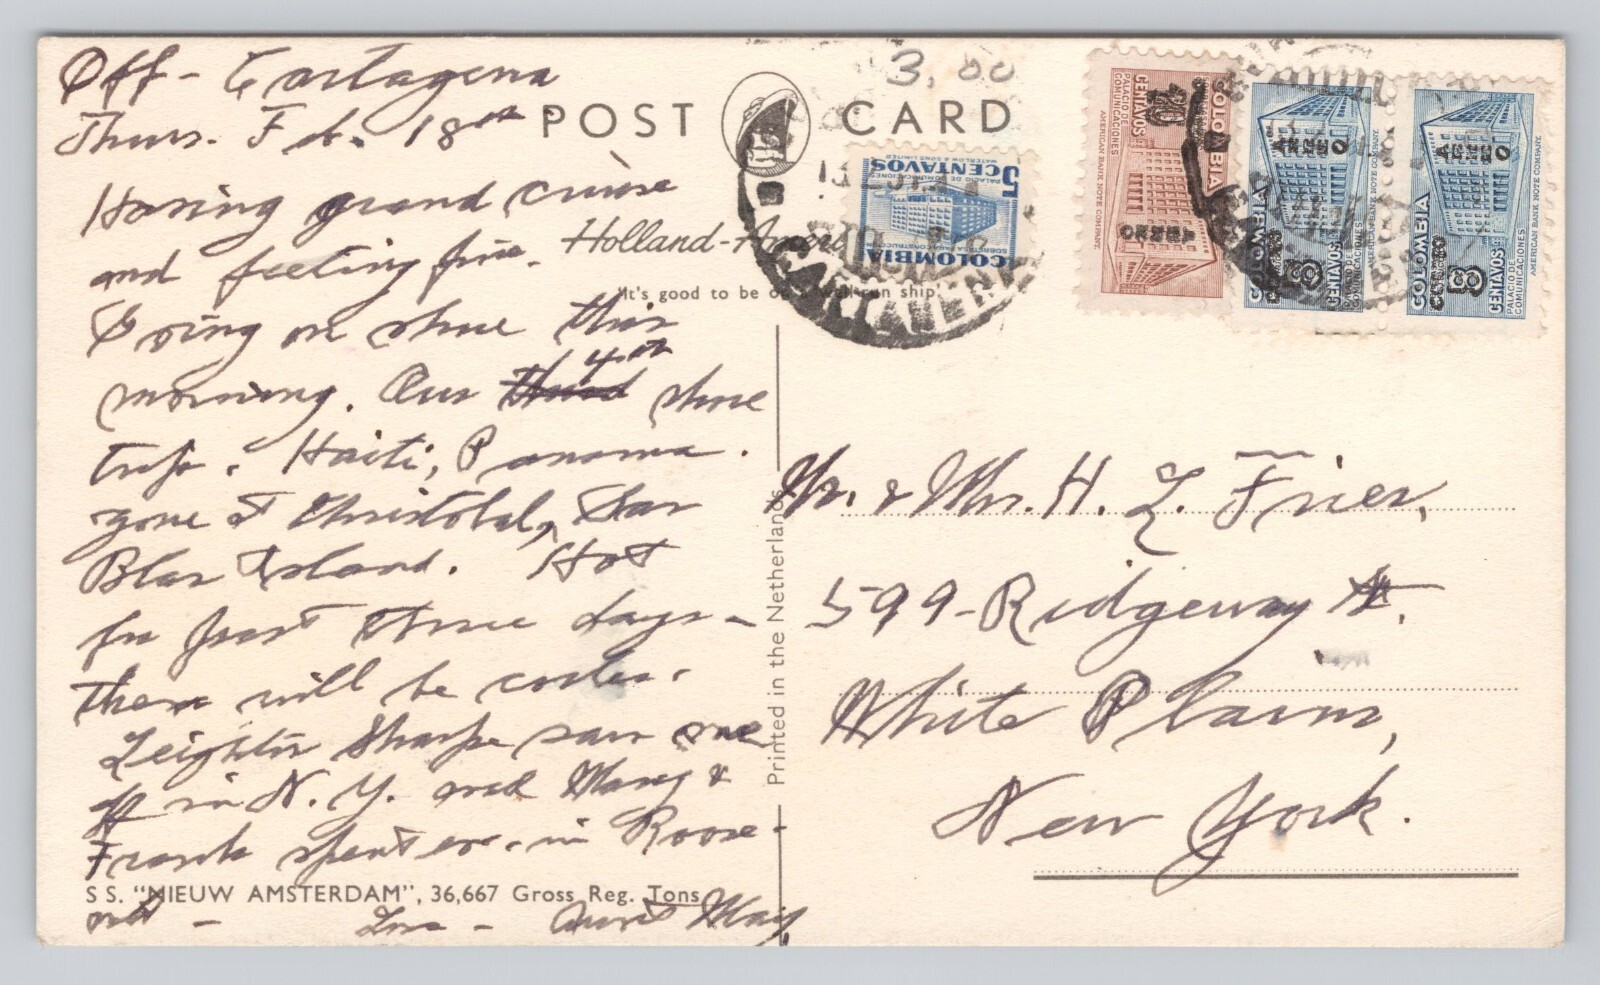 Off - Cartagena
Thurs. Feb. 18th
Having grand cruise
and feeling fine.
Going on shore this
morning. Our Third 4th shore
trip. Haiti, Panama.
zone & Christobal, San
Blas Island. Hot
for past three days -
then will be cooler.
Leighton Sharpe saw me
off in N. Y. and Mary &
Frank spent eve. in Roose-
velt - Love - Aunt May
S S. "NIEUW AMSTERDAM", 36,667 Gross Reg. Tons
POST CARD
3,00
Holland-Amer
"It's good to be on a well-run ship"
Printed in the Netherlands
Mr. & Mrs. H. L. Frier,
599-Ridgeway St.
White Plains,
New York.
5 CENTAVOS
PALACIO DE COMUNICACIONES
WATERLOW & SONS LIMITED
SOBRETASA PARA CONSTRUCCION
COLOMBIA
CARTAGENA
COLOMBIA
CENTAVOS
PALACIO DE
COMUNICACIONES
AMERICAN BANK NOTE COMPANY
AEREO
COLOMBIA
CORREO
AEREO
8
CENTAVOS
PALACIO DE
COMUNICACIONES
AMERICAN BANK NOTE COMPANY
COLOMBIA
CORREO
AEREO
8
CENTAVOS
PALACIO DE
COMUNICACIONES
AMERICAN BANK NOTE COMPANY